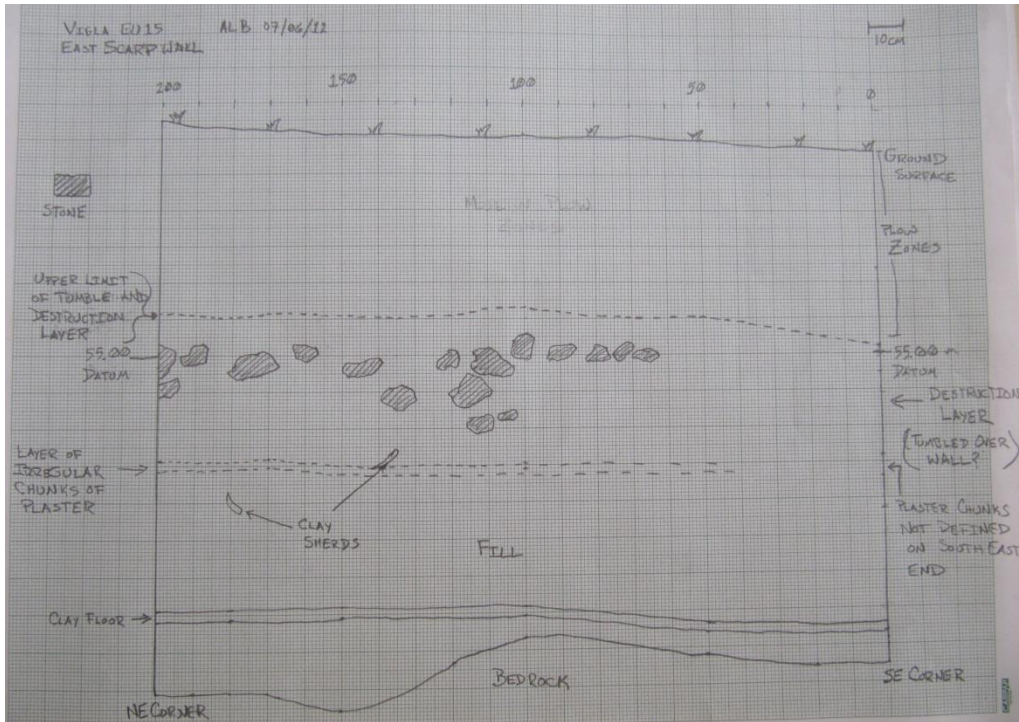 VIGLA EU15 ALB 07/06/12
EAST SCARP WALL
10CM
200 150 100 50 0
GROUND
SURFACE
STONE
MODERN PLOW
ZONES
PLOW
ZONES
UPPER LIMIT
OF TUMBLE AND
DESTRUCTION
LAYER
55.00
DATUM
55.00 m
DATUM
DESTRUCTION
LAYER
(TUMBLED OVER
WALL?)
LAYER OF
IRREGULAR
CHUNKS OF
PLASTER
PLASTER CHUNKS
NOT DEFINED
ON SOUTH EAST
END
CLAY
SHERDS
FILL
CLAY FLOOR
BEDROCK
NE CORNER
SE CORNER